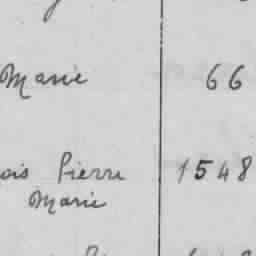 Marie 66
ois Pierre 1548
Marie